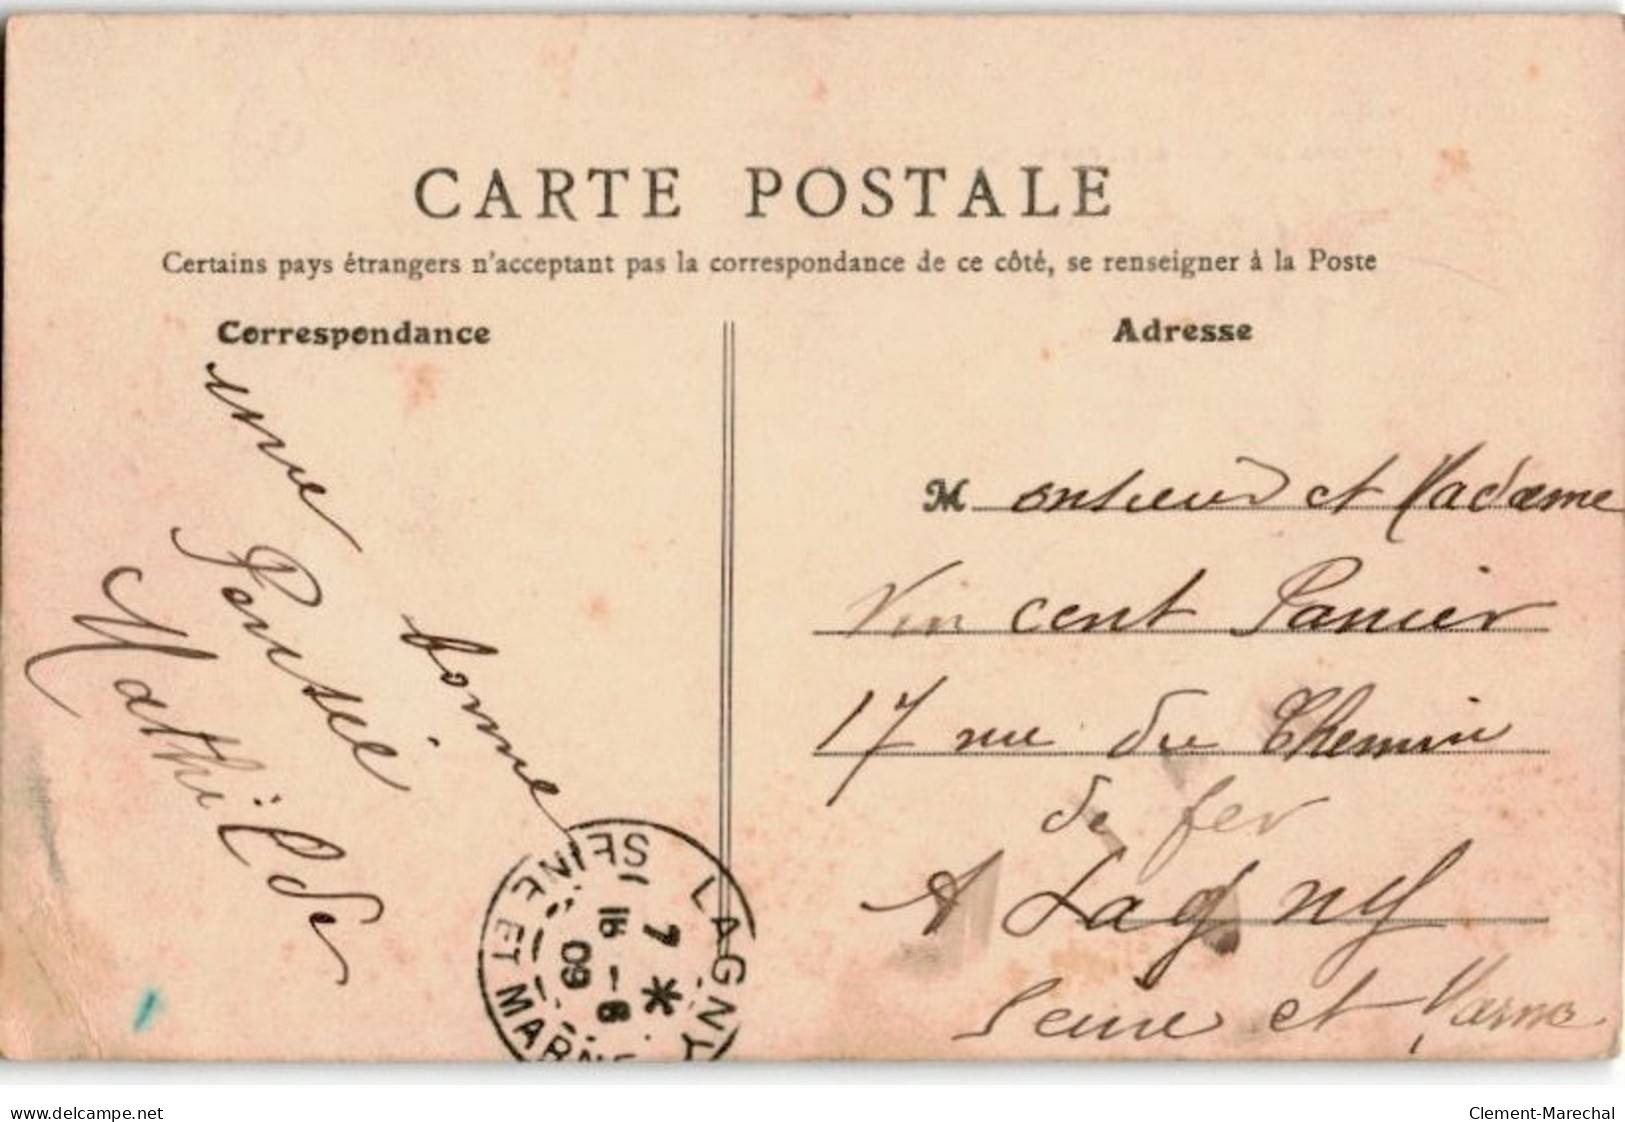 CARTE POSTALE
Certains pays étrangers n'acceptant pas la correspondance de ce côté, se renseigner à la Poste
Correspondance
une bonne
Pensée
Mathilde
Adresse
Monsieur et Madame
Vincent Panier
17 rue du Chemin
de fer
A Lagny
Seine et Marne
LAGNY
SEINE ET MARNE
7 *
16 - 8
09
delcampe.net
Clement-Marechal